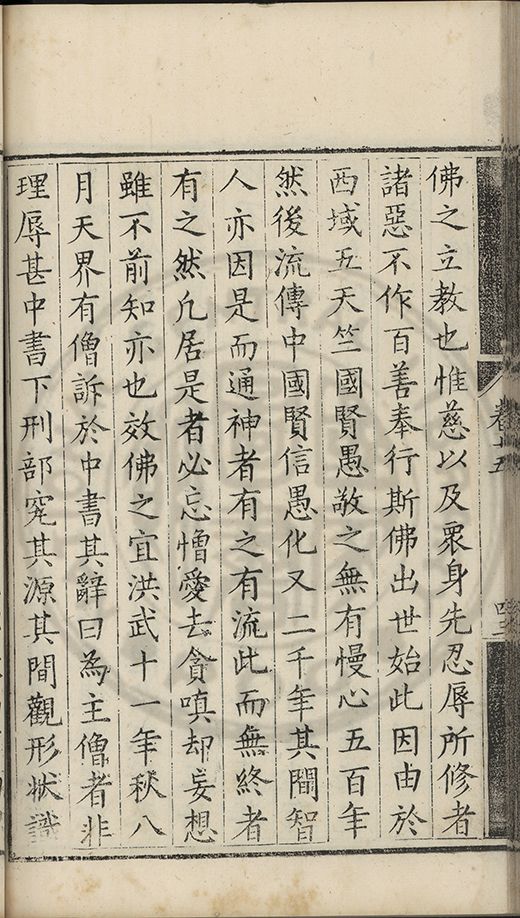 佛之立教也惟慈以及眾身先忍辱所修者
諸惡不作百善奉行斯佛出世始此因由於
西域五天竺國賢愚敬之無有慢心五百年
然後流傳中國賢信愚化又二千年其間智
人亦因是而通神者有之有流此而無終者
有之然凢居是者必忘憎愛去貪嗔却妄想
雖不前知亦也效佛之宜洪武十一年秋八
月天界有僧訴於中書其辭曰為主僧者非
理辱甚中書下刑部究其源其間觀形狀識
卷十五